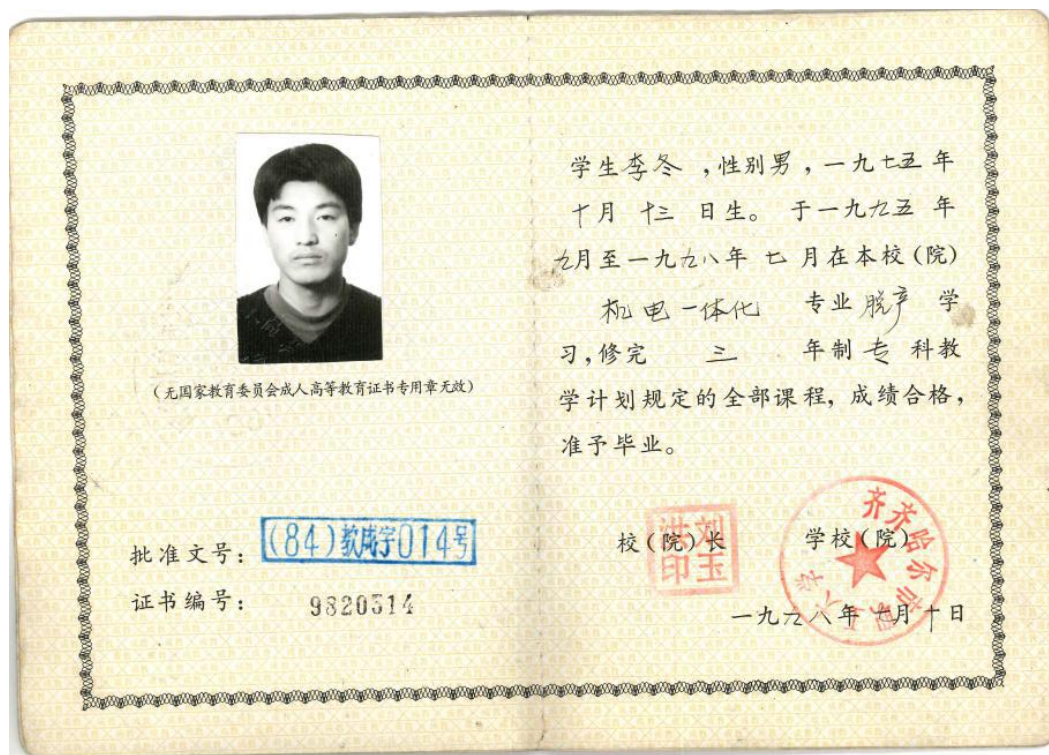 (无国家教育委员会成人高等教育证书专用章无效)
批准文号：
(84)教咸字014号
证书编号：
9820314
学生李冬，性别男，一九七五年
十月十三日生。于一九九五年
九月至一九九八年七月在本校(院)
机电一体化 专业脱产学
习，修完 三 年制专科教
学计划规定的全部课程，成绩合格，
准予毕业。
校(院)长
刘玉洪印
学校(院)
齐齐哈尔市职工大学
一九九八年七月十日